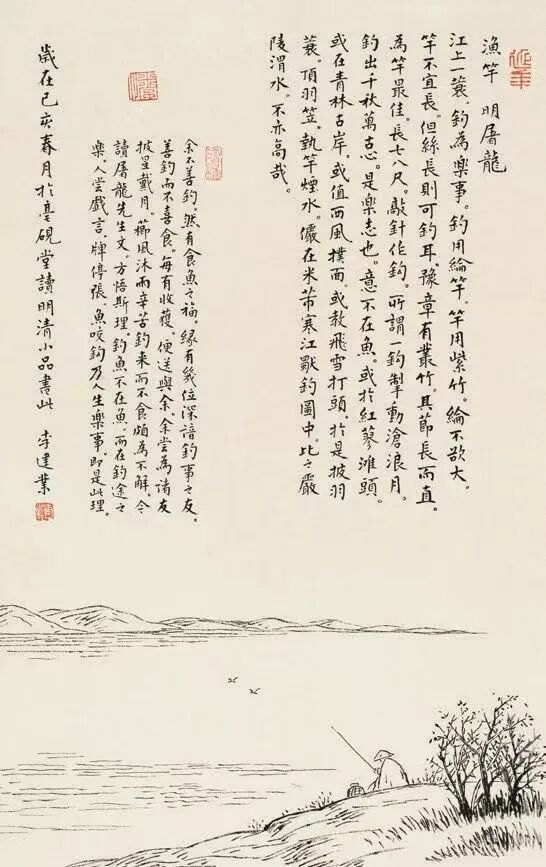 漁竿 明屠龍
江上一蓑。釣為樂事。釣用綸竿。竿用紫竹。綸不欲大。
竿不宜長。但絲長則可釣耳。豫章有叢竹。其節長而直。
為竿最佳。長七八尺。敲針作鈎。所謂一鈎掣動滄浪月。
釣出千秋萬古心。是樂志也。意不在魚。或於紅蓼灘頭。
或在青林古岸。或值西風撲面。或教飛雪打頭。於是披羽
蓑。頂羽笠。執竿煙水。儼在米芾寒江獨釣圖中。比之嚴
陵渭水。不亦高哉。
余不善釣。然有食魚之福。緣有幾位深諳釣事之友。
善釣而不喜食。每有收獲。便送與余。余嘗為諸友
披星戴月。櫛風沐雨辛苦釣來而不食頗為不解。今
讀屠龍先生文。方悟斯理。釣魚不在魚。而在釣途之
樂。人嘗戲言。牌停張。魚咬鈎乃人生樂事。即是此理。
歲在己亥春月於亳硯堂讀明清小品書此 李建業